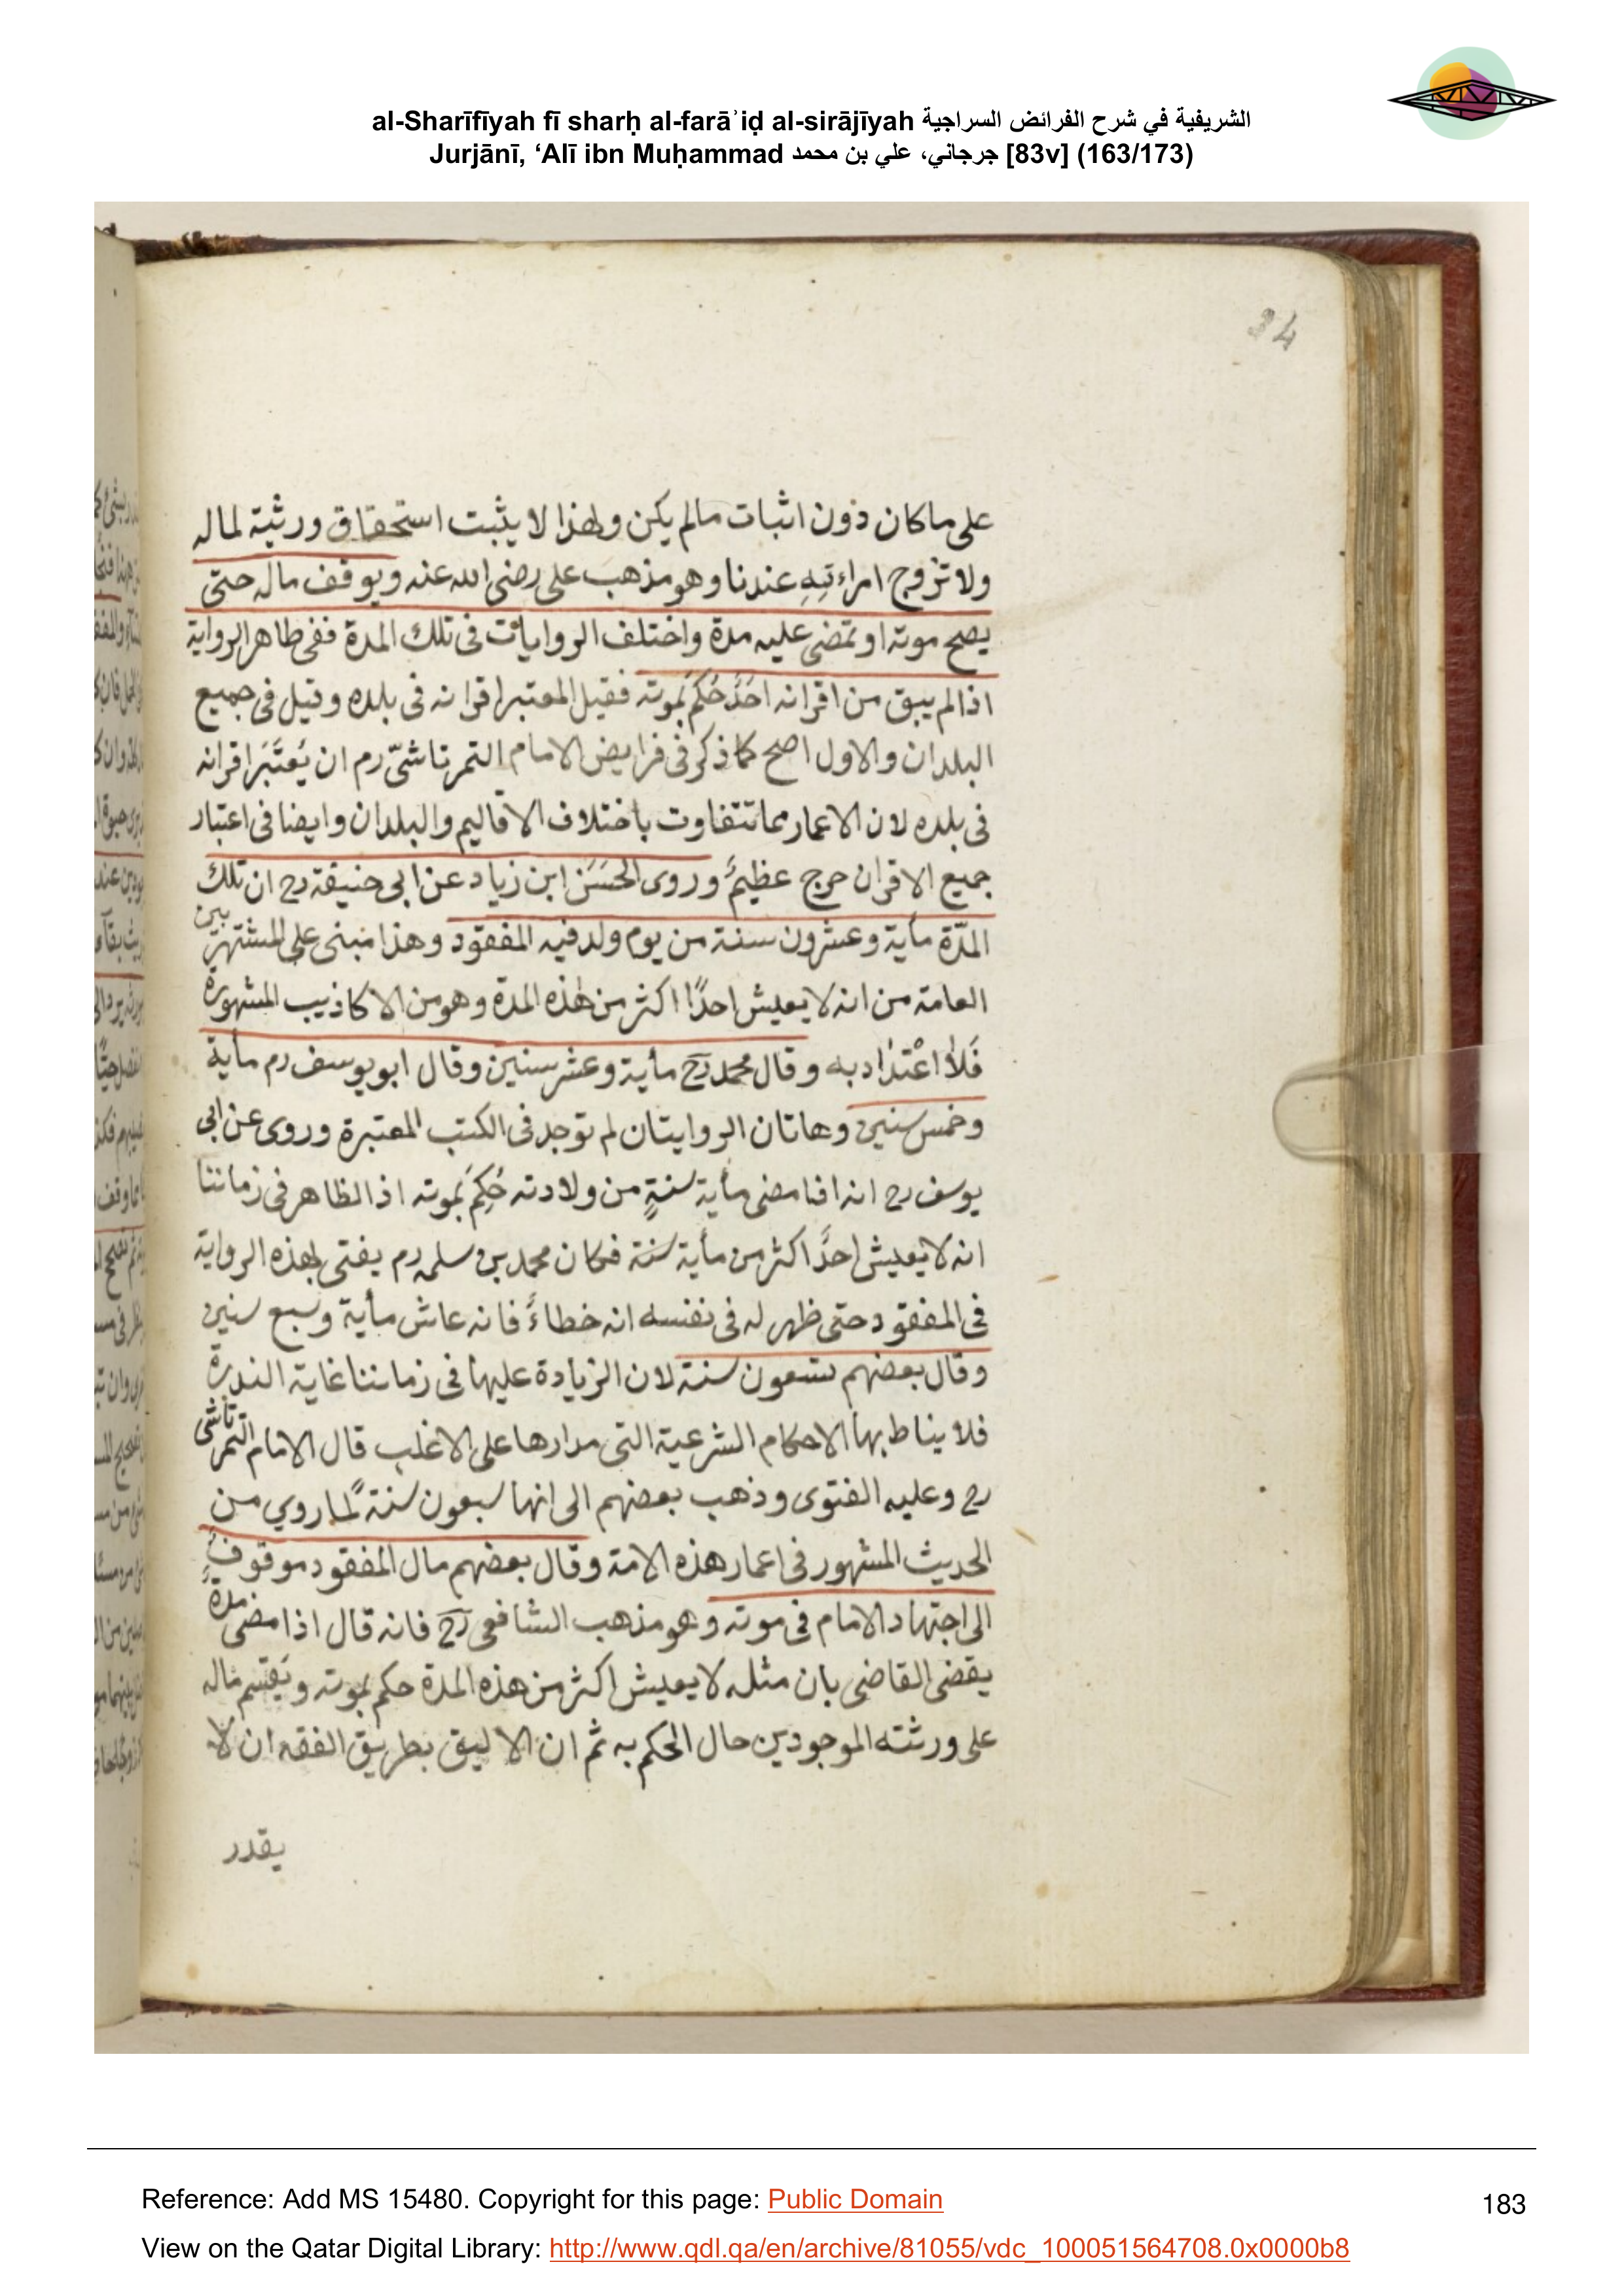 al-Sharīfīyah fī sharḥ al-farāʾiḍ al-sirājīyah الشريفية في شرح الفرائض السراجية
Jurjānī, ‘Alī ibn Muḥammad جرجاني، علي بن محمد [83v] (163/173)
84
على ماكان دون اثبات مالم يكن ولهذا لا يثبت استحقاق ورثية لماله
ولا تزوج امراءتِهِ عندنا وهو مذهب على رضى الله عنه ويوقف ماله حتى
يصح موته او تمضى عليه مدة واختلف الروايات فى تلك المدة ففى ظاهر الرواية
اذا لم يبق من اقرانه احَدٌ حُكِمَ بموته فقيل المعتبر اقرانه فى بلده وقيل فى جميع
البلدان والاول اصح كما ذكر فى فرايض الامام التمرتاشىّ رم ان يُعتَبَر اقرانه
فى بلده لان الاعمار مما تتفاوت باختلاف الاقاليم والبلدان وايضا فى اعتبار
جميع الاقران حرج عظيمٌ وروى الحَسَن ابن زياد عن ابى حنيفة رح ان تلك
المدّة مأية وعشرون سنة من يوم ولد فيه المفقود وهذا مبنى على المشتهر بين
العامة من انه لا يعيش احدًا اكثر من هذه المدة وهو من الاكاذيب المشهورة
فَلاَ اعْتدَادبه وقال محمد رح مأية وعشر سنين وقال ابو يوسف رم مأية
وخمس سنين وهاتان الروايتان لم توجد فى الكتب المعتبرة وروى عن ابى
يوسف رح انه اذا مضى مأية سنةٍ من ولادته حُكِمَ بموته اذ الظاهر فى زماننا
انه لا يعيش احدٌ اكثر من مأية سنة فكان محمد بن سلمه رم يفتى بهذه الرواية
فى المفقود حتى ظهر له فى نفسه انه خطاءٌ فانه عاش مأية وسبع سنين
وقال بعضهم تسعون سنة لان الزيادة عليها فى زماننا غاية الندرة
فلا يناط بها الاحكام الشرعية التى مدارها على الاغلب قال الامام التمرتاشى
رح وعليه الفتوى وذهب بعضهم الى انها سبعون سنة لما روي من
الحديث المشهور فى اعمار هذه الامة وقال بعضهم مال المفقود موقوفٌ
الى اجتهاد الامام فى موته وهو مذهب الشافعى رح فانه قال اذا مضى مدة
يقضى القاضى بان مثله لا يعيش اكثر من هذه المدة حكم بموته ويُقتسم ماله
على ورثته الموجودين حال الحكم به ثم ان الاليق بطريق الفقه ان لا
يقدر
Reference: Add MS 15480. Copyright for this page: Public Domain
183
View on the Qatar Digital Library: http://www.qdl.qa/en/archive/81055/vdc_100051564708.0x0000b8